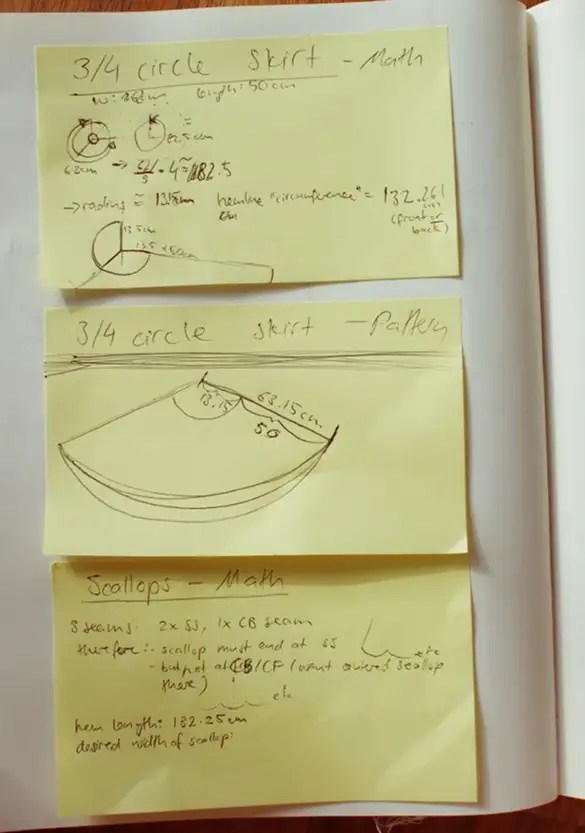 3/4 circle skirt - Math
length: 50cm
62cm → · 4 ≈ 82.5
→ radius ≈ 13.15cm hemline "circumference" = 132.261
cm
(front or
back)
13.5cm
13.5 + 50cm
3/4 circle skirt - Pattern
13.15
63.15cm
50
Scallops - Math
3 seams: 2x SS, 1x CB seam
therefore: - scallop must end at SS
etc
- but not at CB/CF (want centered scallop
there)
etc
hem length: 132.25cm
desired width of scallop: